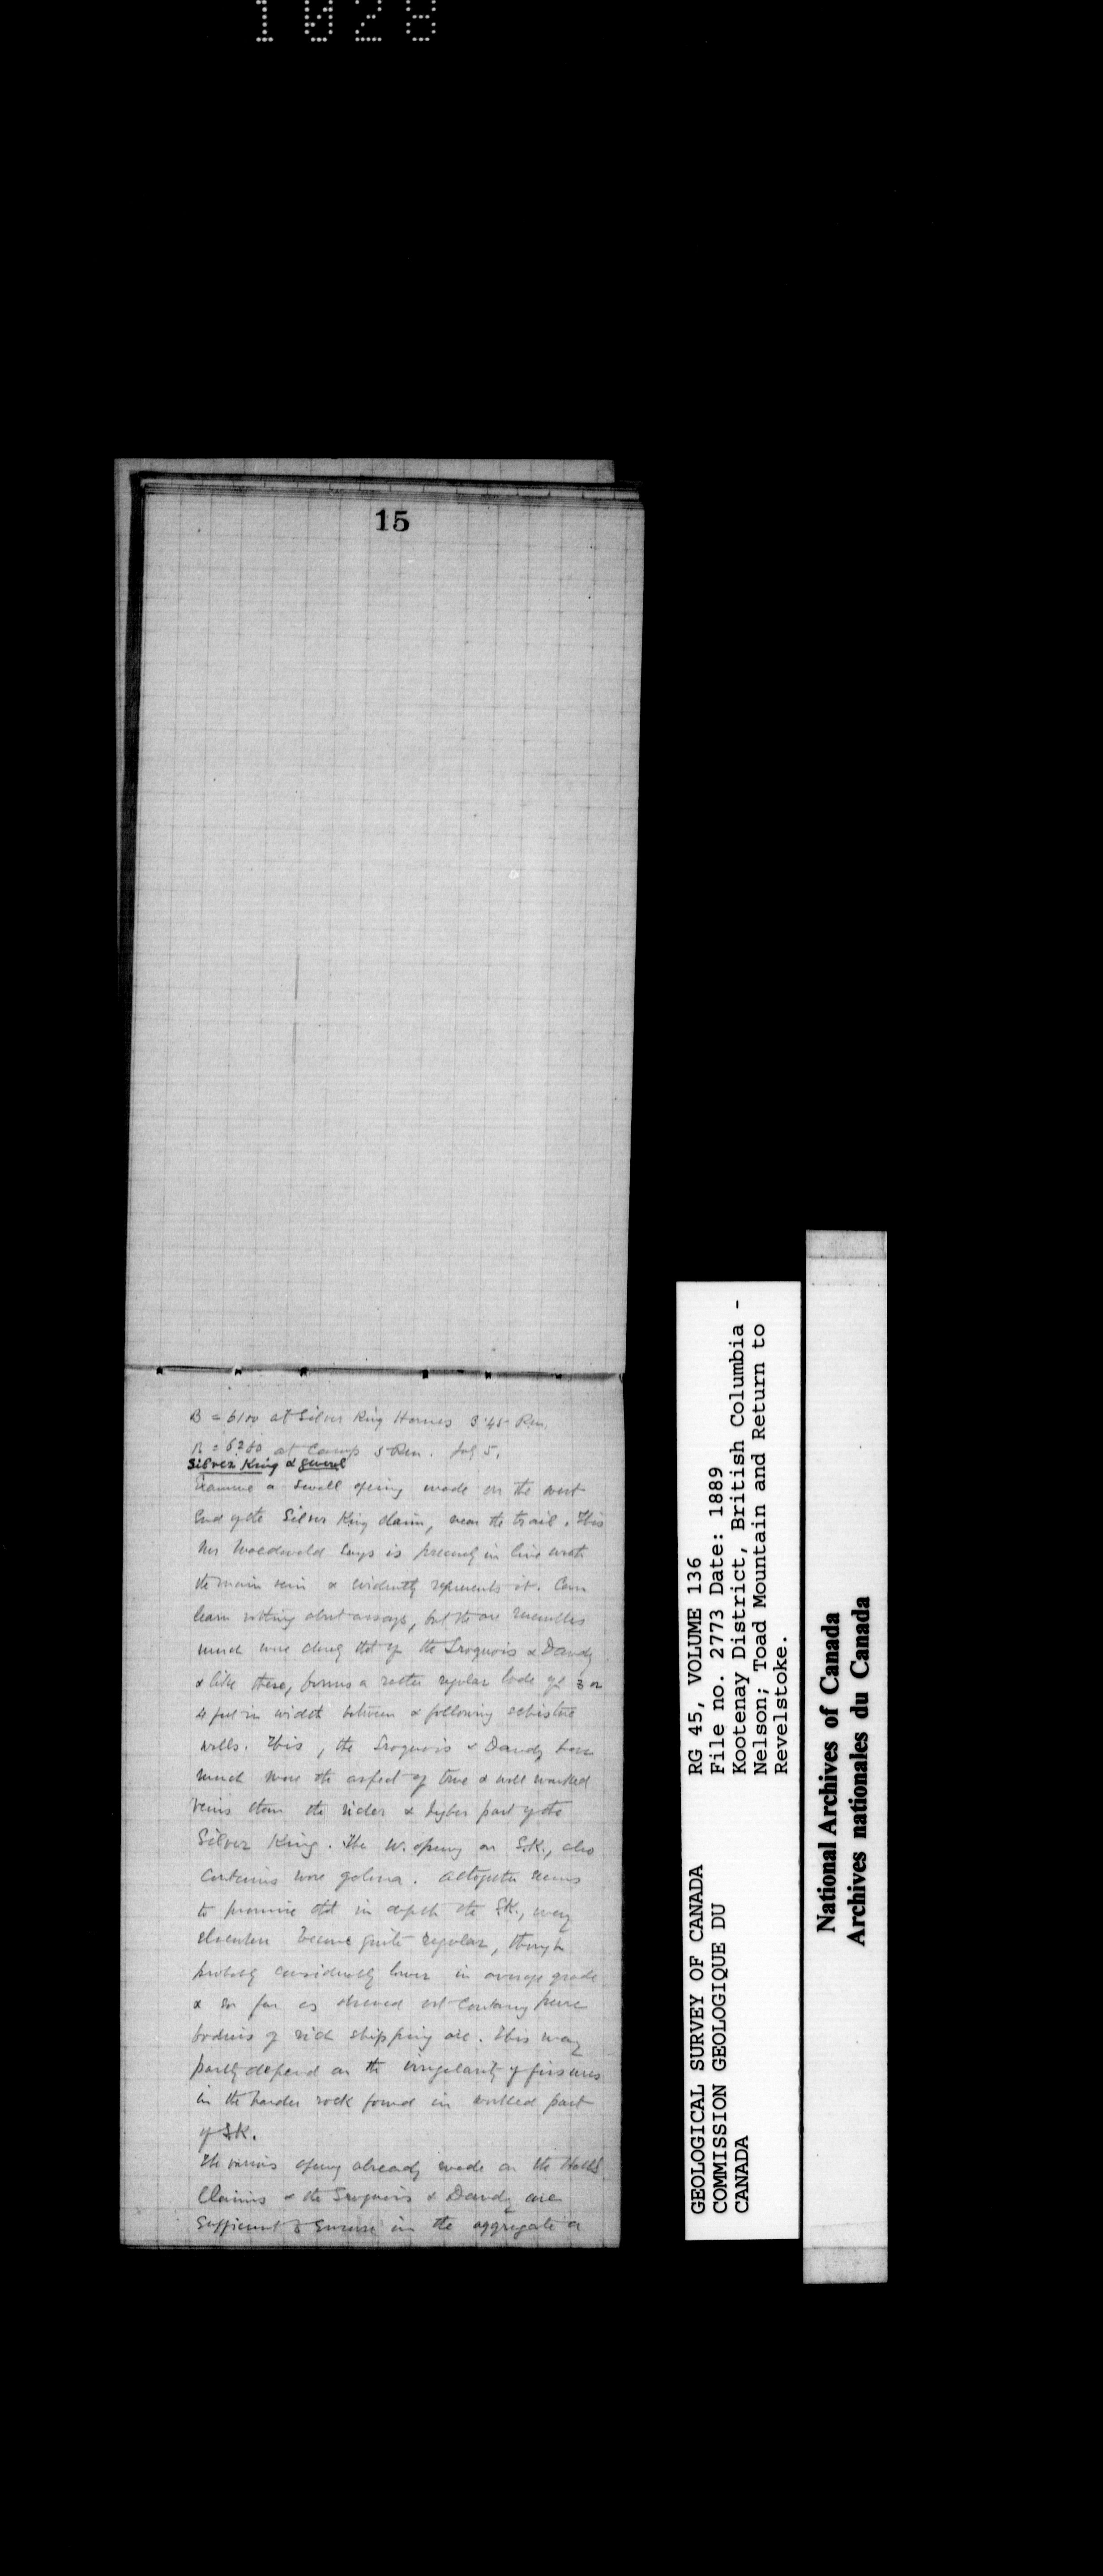 1028
15
B = 6100 at Silver King Houses 3.45 P.M.
B = 5260 at Camp 5 P.M. July 5.
Silver King & general
Examine a small opening made on the west
end of the Silver King claim, near the trail. This
Mr Macdonald says is precisely in line with
the main vein & evidently represents it. Can
learn nothing about assays, but the ore resembles
much more closely that of the Iroquois & Dandy
& like these, forms a rather regular lode of 3 or
4 feet in width between & following schistose
walls. This, the Iroquois & Dandy have
much more the aspect of true & well marked
veins than the richer & higher part of the
Silver King. The W. opening on S.K., also
contains more galena. Altogether seems
to promise that in depth the S.K., may
elsewhere become quite regular, though
probably considerably lower in average grade
& so far as showed not containing pure
bodies of rich shipping ore. This may
partly depend on the irregularity of fissures
in the harder rock found in worked part
of S.K.
The various opening already made on the Hall
Claims & the Iroquois & Dandy are
sufficient to ensure in the aggregate a
GEOLOGICAL SURVEY OF CANADA
COMMISSION GEOLOGIQUE DU
CANADA
RG 45, VOLUME 136
File no. 2773 Date: 1889
Kootenay District, British Columbia -
Nelson; Toad Mountain and Return to
Revelstoke.
National Archives of Canada
Archives nationales du Canada